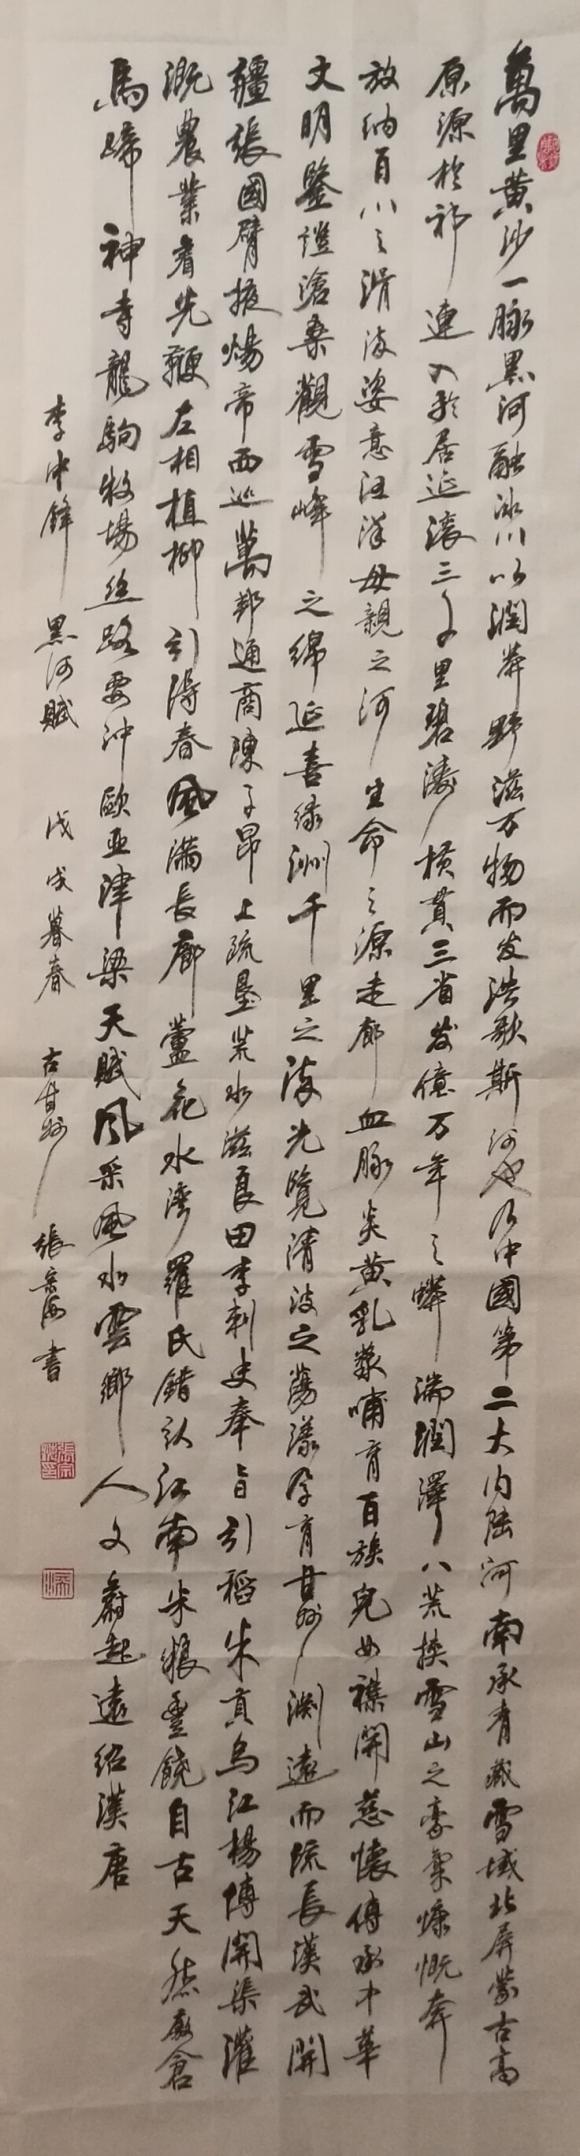 萬里黄沙一脉黑河融冰川以潤莽野滋万物而发浩歌斯河也乃中國第二大内陆河南承青藏雪域北屏蒙古高
原源於祁連入於居延滚三千里碧濤横貫三省发億万年之蟒湍潤澤八荒挟雪山之豪氣慷慨奔
放纳百川之涓流姿意汪洋母親之河生命之源走廊血脉炎黄乳漿哺育百族兒女襟開慈懷傳承中華
文明鑒證滄桑觀雪峰之绵延喜绿洲千里之流光覽清波之蕩漾孕育甘州渊遠而流長漢武開
疆張國臂掖煬帝西巡萬邦通商陳子昂上疏垦荒水滋良田李刺史奉旨引稻朱貢烏江楊博開渠灌
溉農業着先鞭左相植柳引得春風满長廊蘆花水湾羅氏錯认江南米粮豊饒自古天然廒倉
馬蹄神寺龍駒牧場丝路要沖歐亚津梁天賦風采風水雲鄉人文蔚起遠绍漢唐
李中鋒黑河賦 戊戌暮春 古甘州 張宗海書